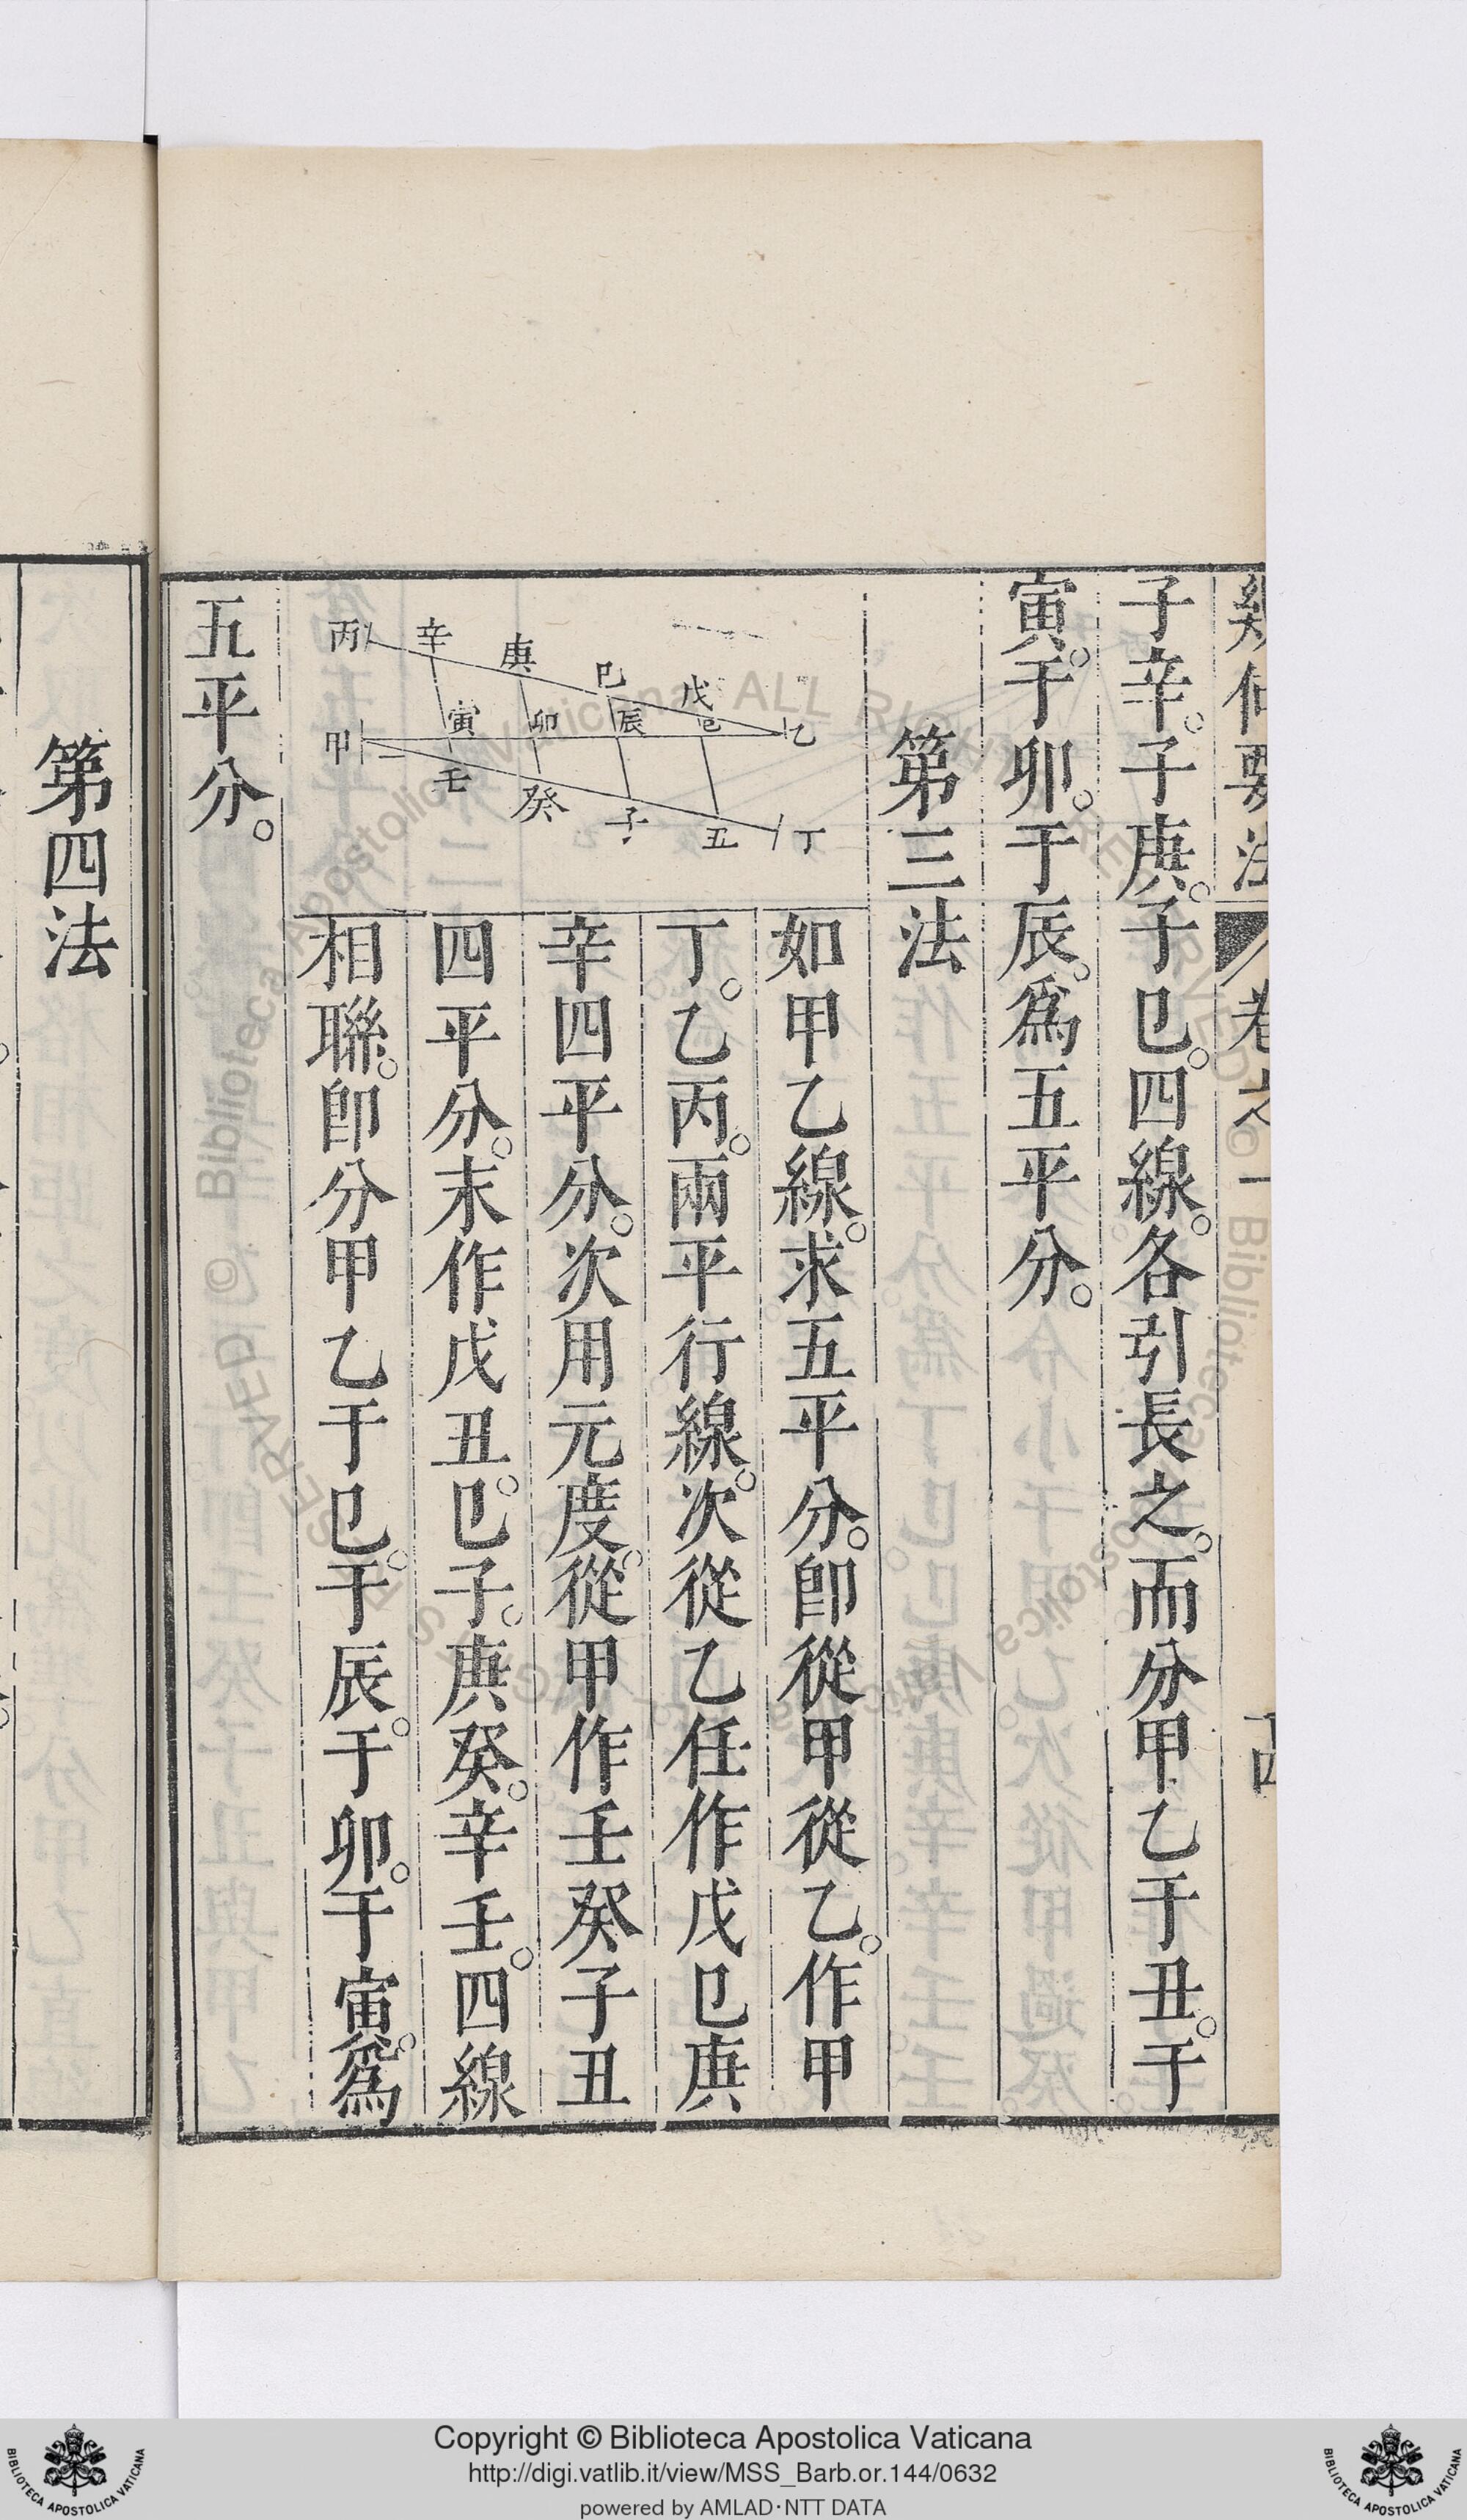 幾何要法 卷之一
子辛。子庚。子巳。四線。各引長之。而分甲乙于丑。于
寅。于卯。于辰。爲五平分。
第三法
丙 辛 庚 巳 戊
甲 寅 卯 辰 巳 乙
壬 癸 子 丑 丁
如甲乙線。求五平分。卽從甲從乙。作甲
丁。乙丙。兩平行線。次從乙任作戊巳庚
辛四平分。次用元度。從甲作壬癸子丑
四平分。末作戊丑。巳子。庚癸。辛壬。四線
相聯。卽分甲乙于巳。于辰。于卯。于寅。爲
五平分。
第四法
© Biblioteca Apostolica Vaticana ALL RIGHTS RESERVED
Copyright © Biblioteca Apostolica Vaticana
http://digi.vatlib.it/view/MSS_Barb.or.144/0632
powered by AMLAD·NTT DATA
BIBLIOTECA APOSTOLICA VATICANA
BIBLIOTECA APOSTOLICA VATICANA